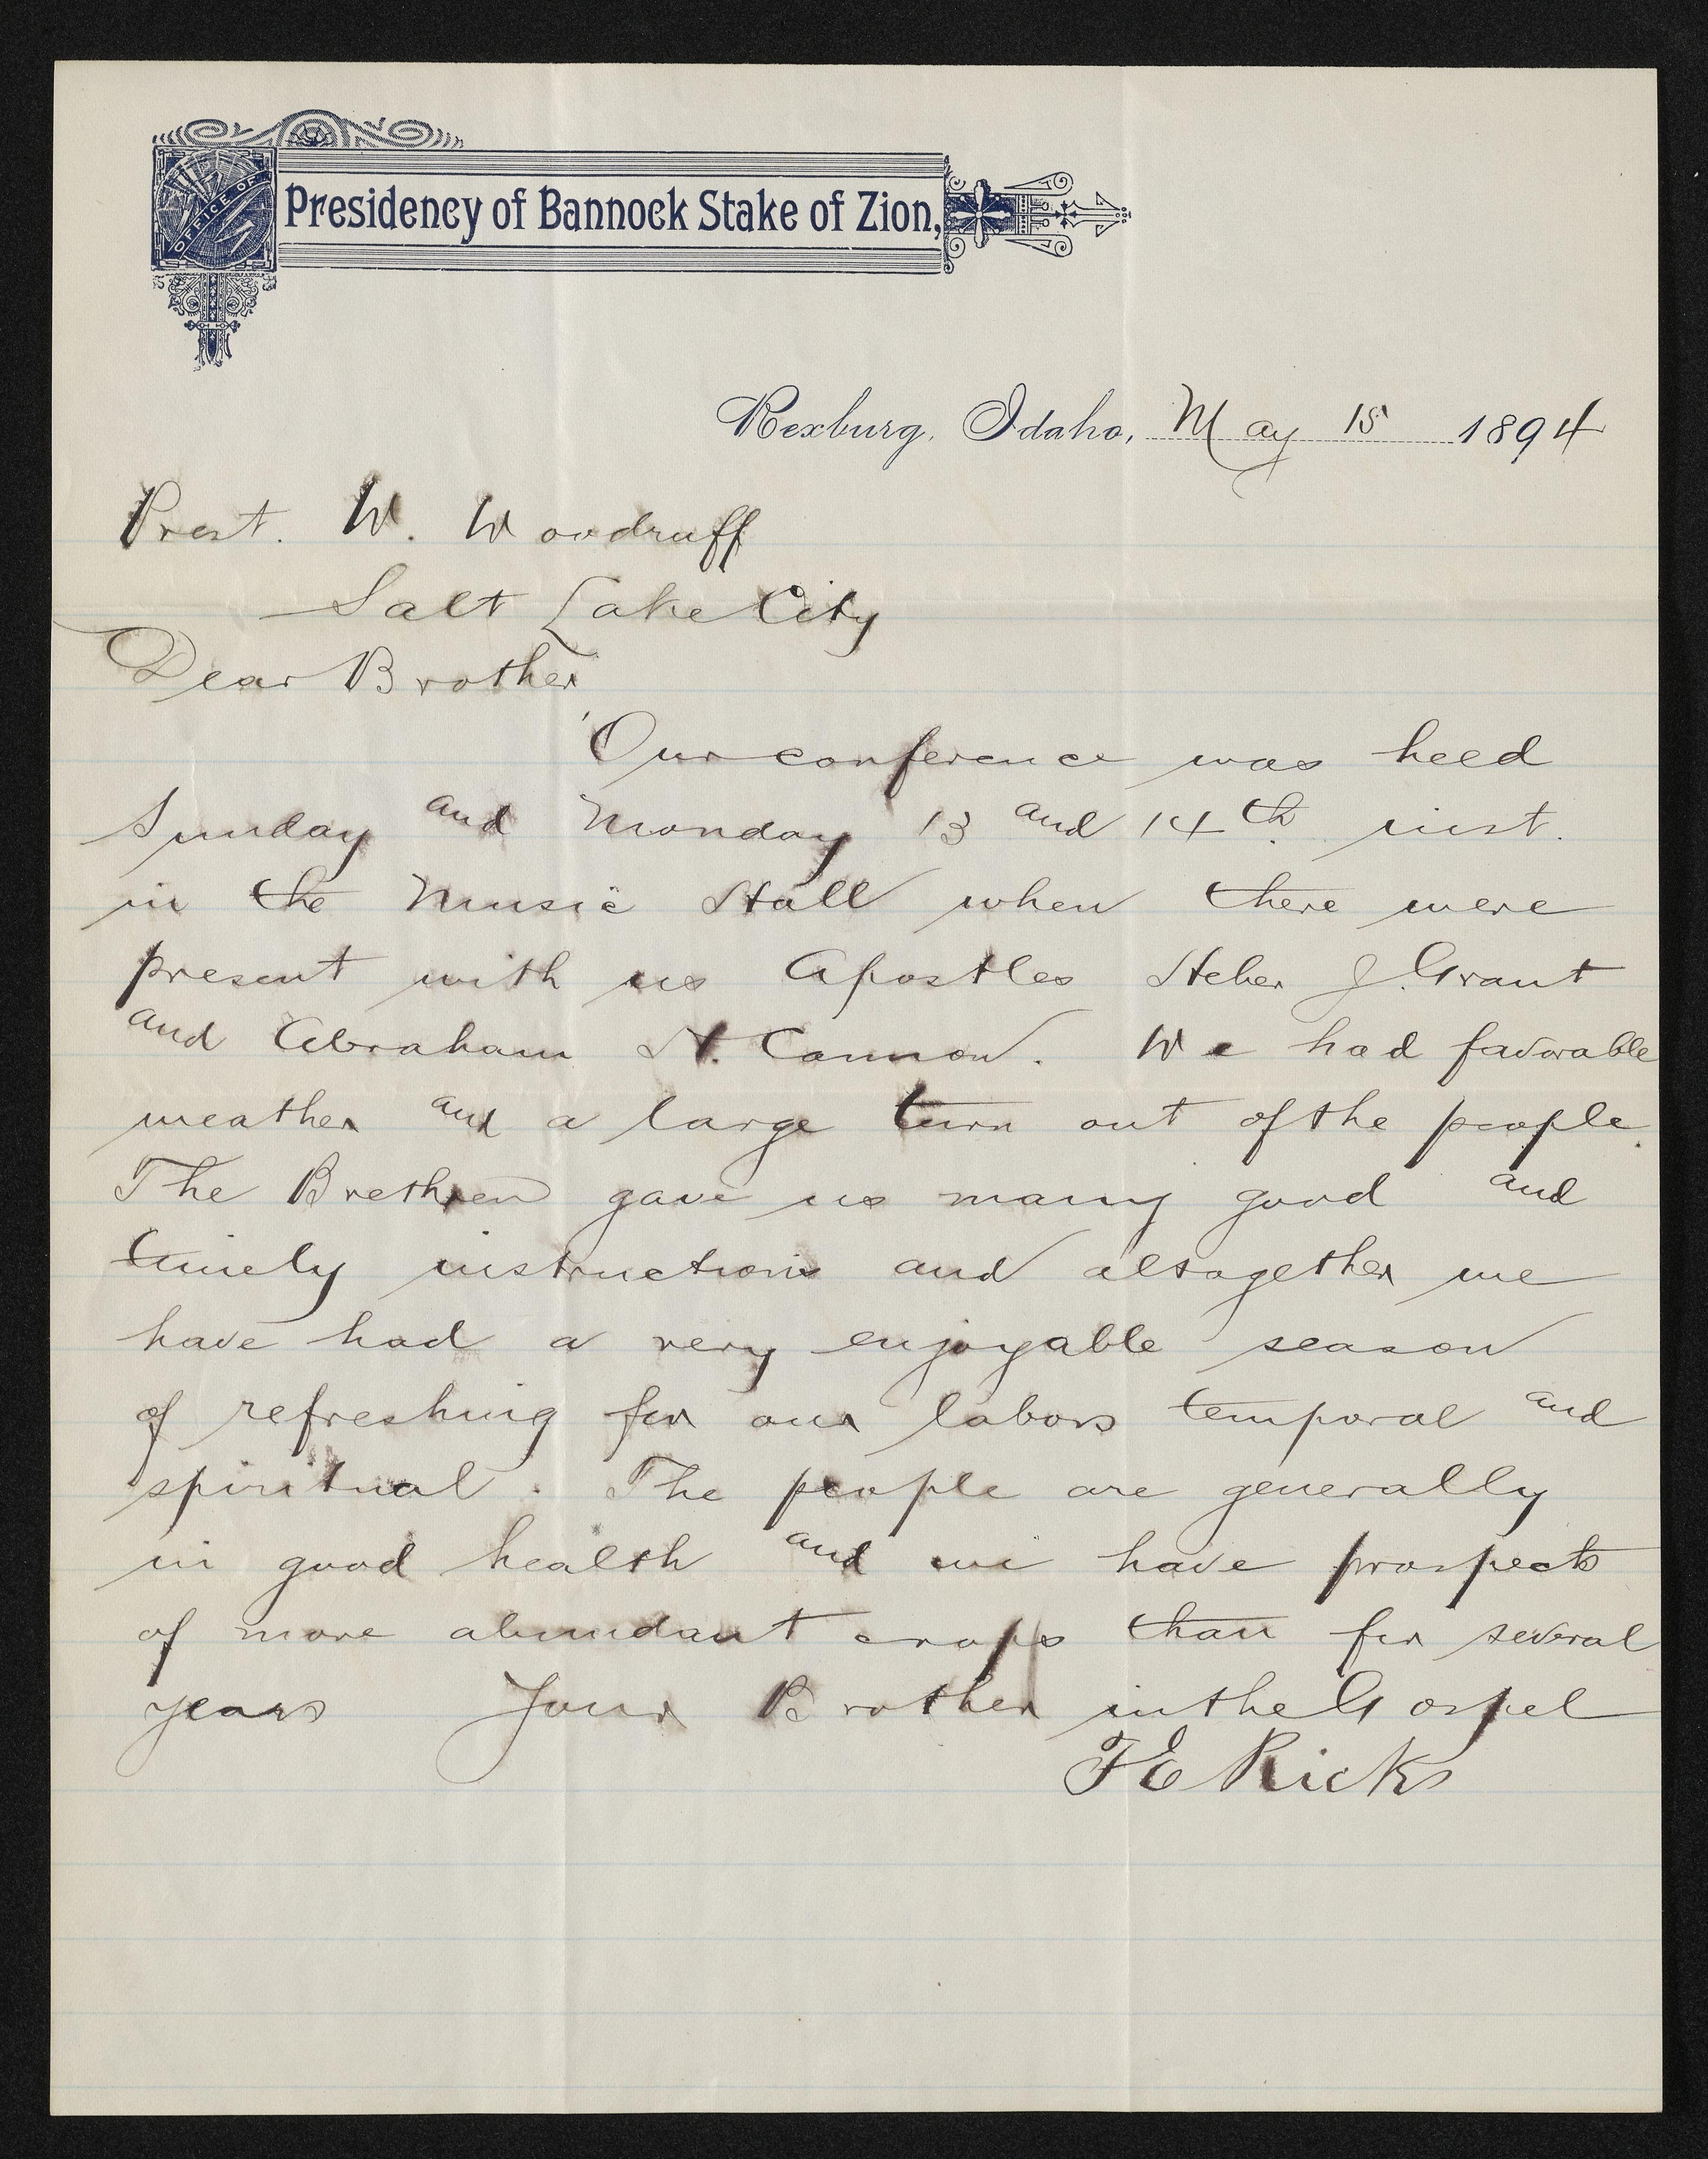 OFFICE OF
Presidency of Bannock Stake of Zion,
Rexburg, Idaho, May 15 1894
Prest. W. Woodruff
Salt Lake City
Dear Brother
Our conference was held
Sunday and Monday 13 and 14th inst.
in the Music Hall when there were
present with us Apostles Heber J. Grant
and Abraham H. Cannon. We had favorable
weather and a large turn out of the people.
The Brethren gave us many good and
timely instructions and altogether we
have had a very enjoyable season
of refreshing for our labors temporal and
spiritual. The people are generally
in good health and we have prospects
of more abundant crops than for several
years Your Brother in the Gospel
T E Ricks